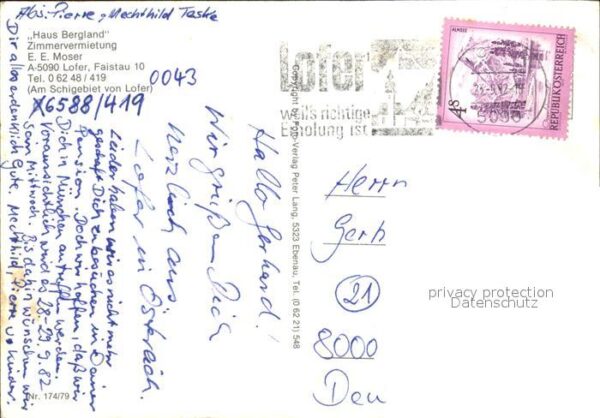 Abs. Pierre + Mechthild Taske
„Haus Bergland"
Zimmervermietung
E. E. Moser
A-5090 Lofer, Faistau 10
Tel. 0 62 48 / 419
(Am Schigebiet von Lofer)
0043
X6588/419
Hallo Gerhard!
Wir grüßen Dich
herzlich aus
Lofer in Österreich.
Leider haben wir es nicht mehr
geschafft Dich zu besuchen in Deiner
Pension. Doch wir hoffen, daß wir
Dich in München antreffen werden.
Voraussichtlich wird es 28.-29.9.82
sein Mittwoch. Bis dahin wünschen wir
Dir allen erdenklich Gute. Mechthild, Pierre u. Kinder.
Nr. 174/79
Copyright by Foto-Verlag Peter Lang, 5323 Ebenau, Tel. (0 62 21) 548
Lofer
weil's richtige
Erholung ist
5090
ALMSEE
4S
REPUBLIK ÖSTERREICH
Herrn
Gerh
21
8000
Deu
privacy protection
Datenschutz